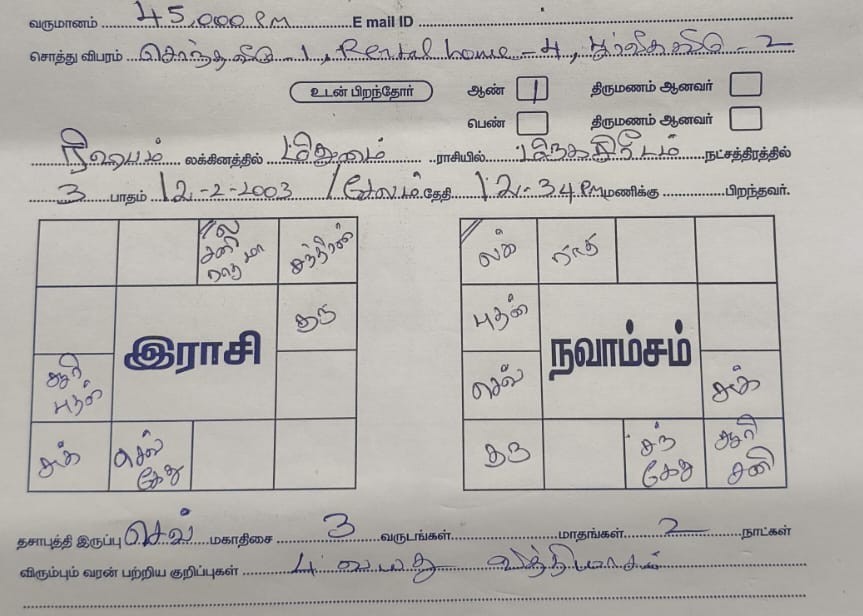 வருமானம் 45,000 PM E mail ID
சொத்து விபரம் சொந்தவீடு - 1, Rental house - 4, பூர்வீகவீடு - 2
உடன் பிறந்தோர் ஆண் 1 திருமணம் ஆனவர்
பெண் திருமணம் ஆனவர்
ரிஷபம் லக்கினத்தில் மிதுனம் ராசியில் மிருகசீரிடம் நட்சத்திரத்தில்
3 பாதம் 12-2-2003 / சேலம் தேதி 12-34 PM மணிக்கு பிறந்தவர்.
ல சனி ராகு மா சந்திரன்
லக் ராகு
குரு
புதன்
இராசி
நவாம்சம்
சூரி புதன்
செவ் சுக்
சுக் செவ் கேது
குரு சந் கேது சூரி சனி
தசாபுத்தி இருப்பு செவ் மகாதிசை 3 வருடங்கள் மாதங்கள் 2 நாட்கள்
விரும்பும் வரன் பற்றிய குறிப்புகள் 4 வயது வித்தியாசம்